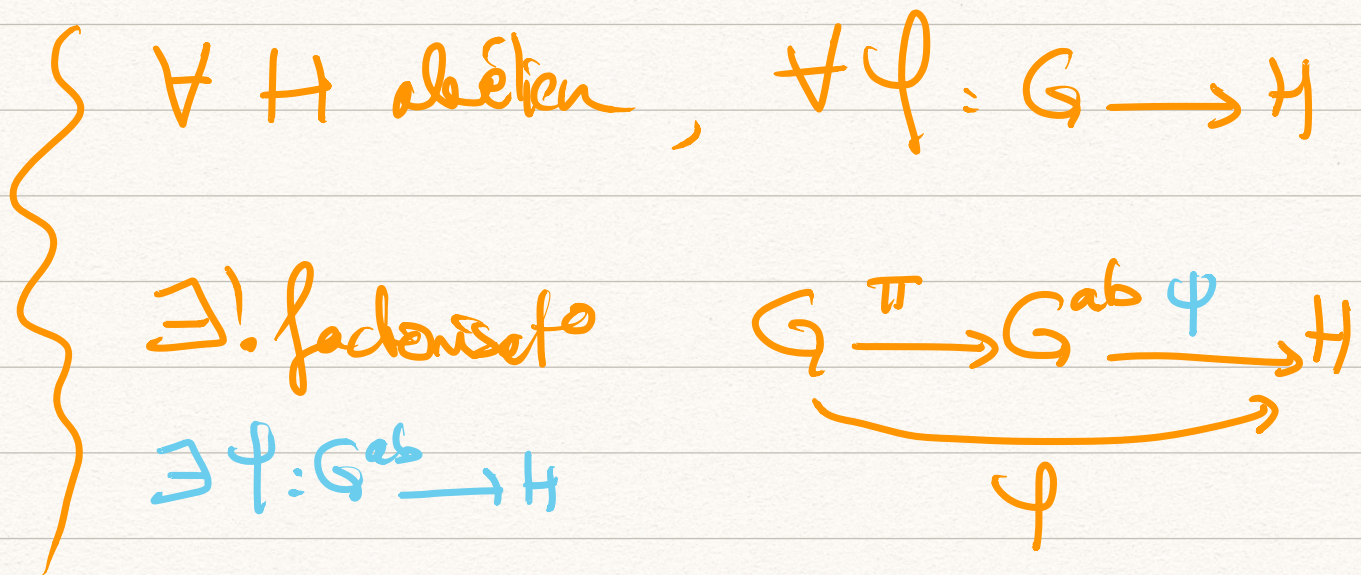 ∀ H abélien, ∀ φ : G → H
∃! factorisat° G →^π G^ab →^ψ H
∃ ψ : G^ab → H
φ